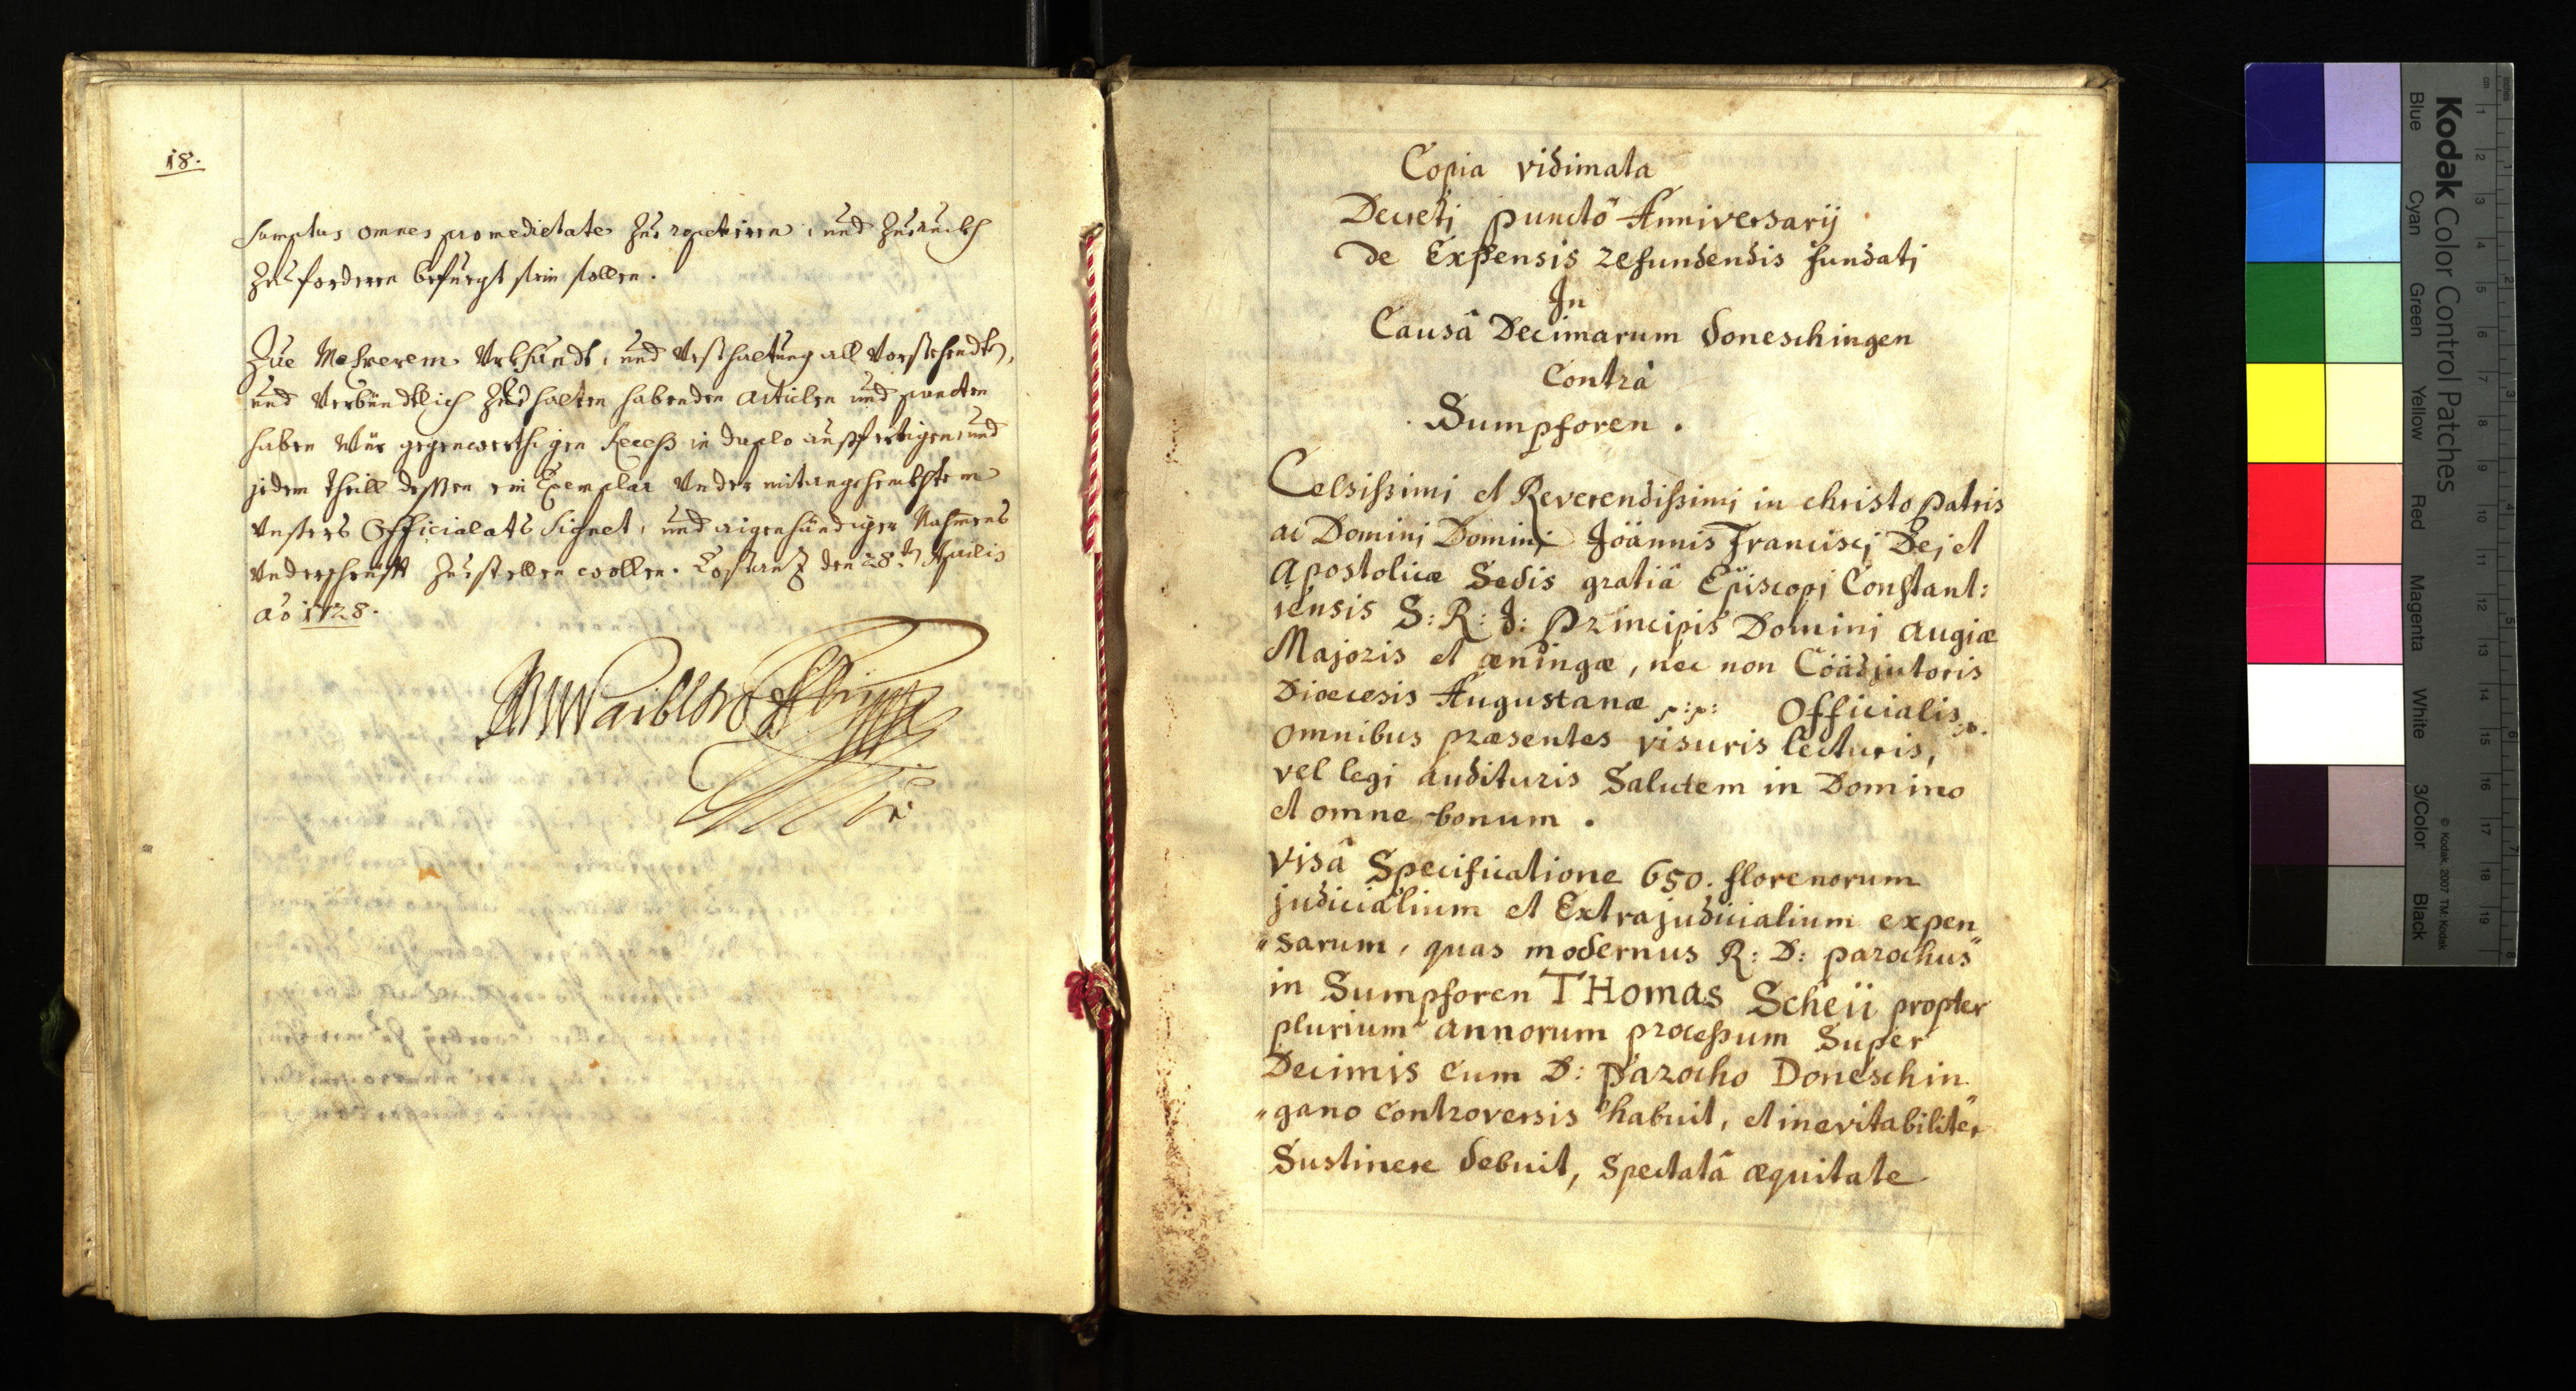 18.
sumptus omnes pro medietate zue repetiren, und zuruckh
zue forderen befuegt sein sollen.
Zue Mehrerem Urkhundt, und Vesthaltung all Vorstehendten,
und Verbündtlich zue halten habenden Articlen und puncten
haben Wür gegenwerthigen Recess in duplo ausferttigen, und
jedem theill dessen ein Exemplar Under mitangehenckhtem
Unsers Officialats Signet, und aigenhändiger Nahmens
Underschrüfft zuestellen wollen. Costantz den 28.ten Aprilis
aõ 1728.
Copia vidimata
Decreti punctô Anniversarij
de Expensis refundendis fundati
In
Causâ Decimarum doneschingen
Contrà
Sumpforen.
Celsissimi et Reverendissimi in christo patris
ac Domini Domini Jöännis Francisci Dei et
Apostolicæ Sedis gratiâ Episcopi Constant:
iensis S: R: J: principis Domini Augiæ
Majoris et æningæ, nec non Cöädjutoris
Dioecesis Augustanæ p:p: Officialis
omnibus præsentes visuris lecturis,
vel legi audituris Salutem in Domino
et omne bonum.
Visâ Specificatione 650. florenorum
judicialium et Extrajudicialium expen
"sarum, quas modernus R: D: parochus
in Sumpforen THomas Scheii propter
plurium annorum processum Super
Decimis cum D: parocho Doneschin
"gano controversis habuit, et inevitabiliter
Sustinere debuit, Spectatâ æquitate
Kodak Color Control Patches
Blue Cyan Green Yellow Red Magenta White 3/Color Black
© Kodak, 2007 TM: Kodak
inches
cm
1 2 3 4 5 6 7 8 9 10 11 12 13 14 15 16 17 18 19
1 2 3 4 5 6 7 8